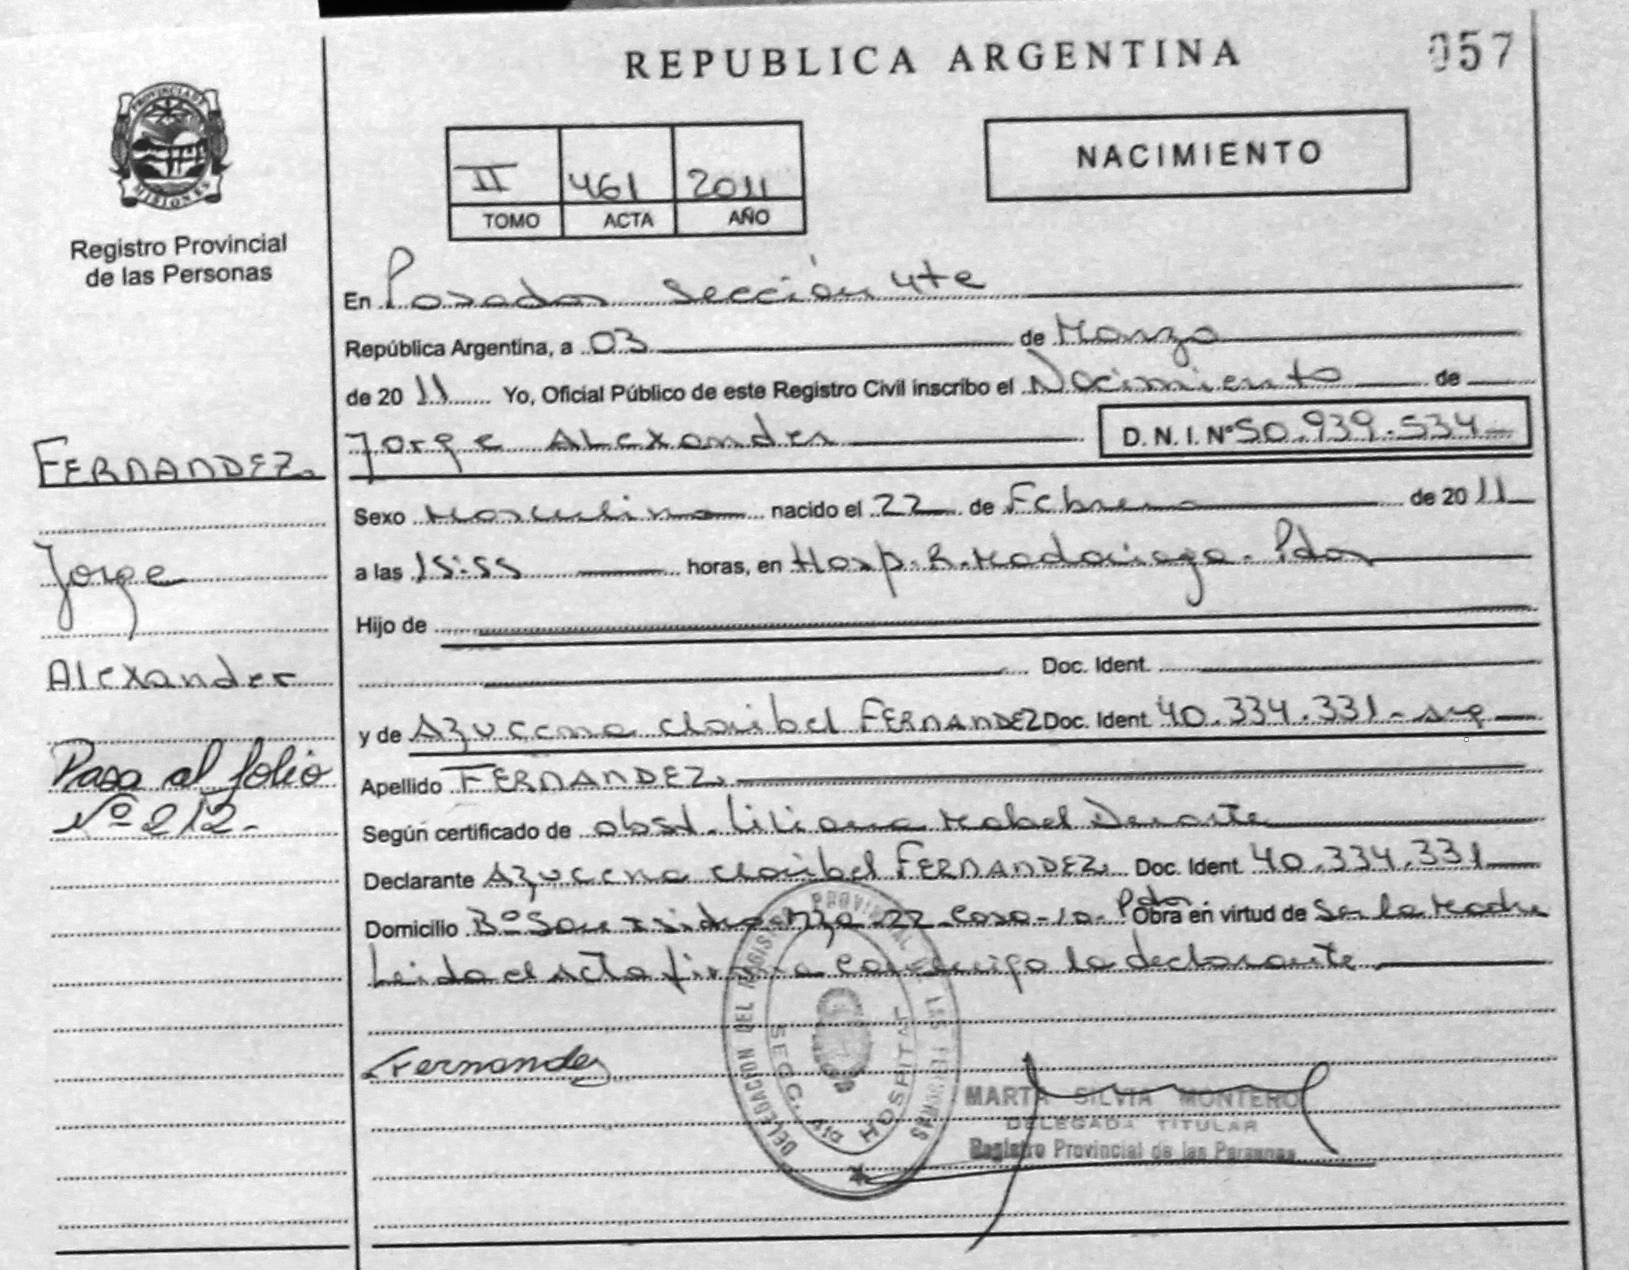 REPUBLICA ARGENTINA
057
PROVINCIA DE
MISIONES
Registro Provincial
de las Personas
II 461 2011
TOMO ACTA AÑO
NACIMIENTO
En Posadas Sección 4te
República Argentina, a 03 de Marzo
de 2011 Yo, Oficial Público de este Registro Civil inscribo el Nacimiento de
Jorge Alexander D. N. I. Nº 50.939.534
Sexo Masculino nacido el 22 de Febrero de 2011
a las 15:55 horas, en Hosp. R. Madariaga - Pdas
Hijo de
Doc. Ident.
y de Azucena Claribel FERNANDEZ Doc. Ident. 40.334.331
Apellido FERNANDEZ.
Según certificado de obst. Liliana Mabel Duarte
Declarante Azucena Claribel FERNANDEZ. Doc. Ident. 40.334.331
Domicilio Bº San Isidro Mza 22 Casa 10 - Pdas. Obra en virtud de Ser la Madre
Leida el Acta firma conmigo la declarante
FERNANDEZ.
Jorge
Alexander
Pasa al folio
Nº 212.-
Fernandez
DELEGACION DEL REGISTRO PROVINCIAL DE LAS PERSONAS
SECC. 4ta HOSPITAL
MARTA SILVIA MONTERO
DELEGADA TITULAR
Registro Provincial de las Personas